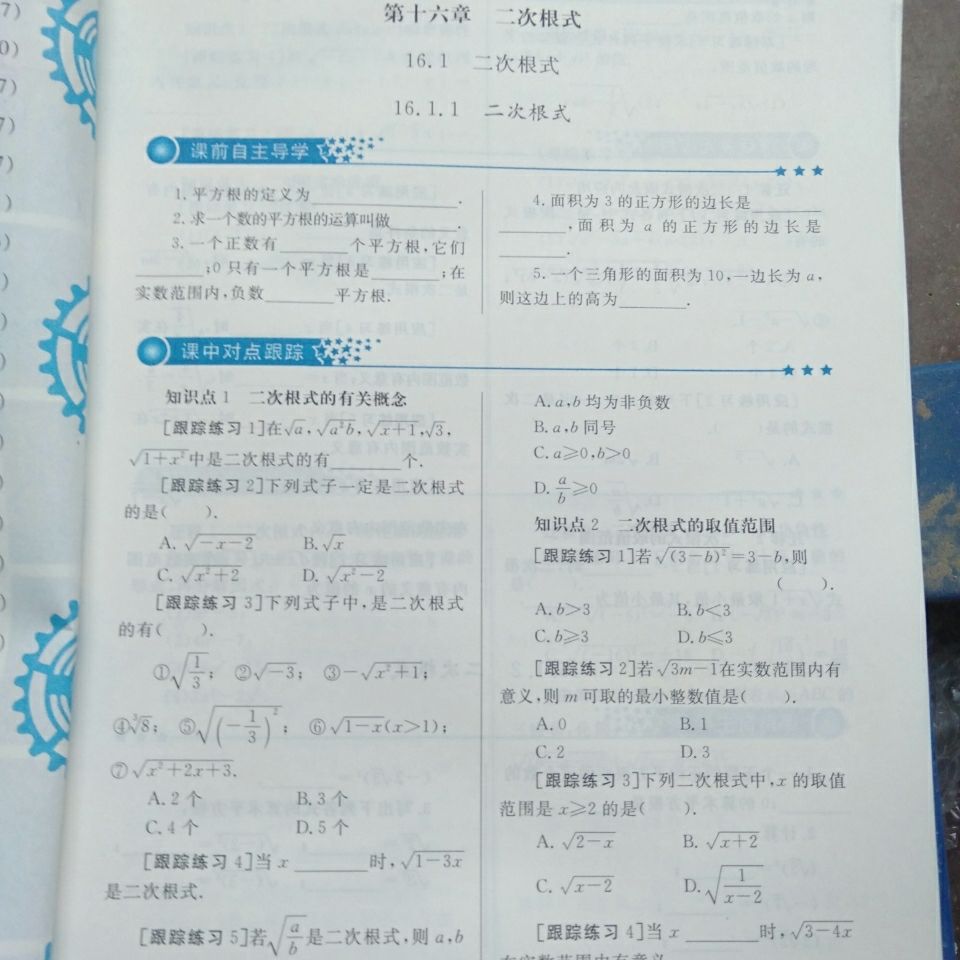 第十六章 二次根式
16.1 二次根式
16.1.1 二次根式
课前自主导学
1. 平方根的定义为________.
2. 求一个数的平方根的运算叫做________.
3. 一个正数有________个平方根,它们
________;0只有一个平方根是________;在
实数范围内,负数________平方根.
4. 面积为 3 的正方形的边长是________
________,面积为 a 的正方形的边长是
________.
5. 一个三角形的面积为 10,一边长为 a,
则这边上的高为________.
课中对点跟踪
知识点 1 二次根式的有关概念
[跟踪练习 1]在√a,√(a²b),√(x+1),√3,
√(1+x²)中是二次根式的有________个.
[跟踪练习 2]下列式子一定是二次根式
的是( ).
A. √(-x-2) B. √x
C. √(x²+2) D. √(x²-2)
[跟踪练习 3]下列式子中,是二次根式
的有( ).
①√(1/3); ②√(-3); ③-√(x²+1);
④∛8; ⑤√((-1/3)²); ⑥√(1-x)(x>1);
⑦√(x²+2x+3).
A. 2 个 B. 3 个
C. 4 个 D. 5 个
[跟踪练习 4]当 x ________时,√(1-3x)
是二次根式.
[跟踪练习 5]若√(a/b)是二次根式,则 a,b
A. a,b 均为非负数
B. a,b 同号
C. a≥0,b>0
D. a/b≥0
知识点 2 二次根式的取值范围
[跟踪练习 1]若√((3-b)²)=3-b,则
( ).
A. b>3 B. b<3
C. b≥3 D. b≤3
[跟踪练习 2]若√(3m-1)在实数范围内有
意义,则 m 可取的最小整数值是( ).
A. 0 B. 1
C. 2 D. 3
[跟踪练习 3]下列二次根式中,x 的取值
范围是 x≥2 的是( ).
A. √(2-x) B. √(x+2)
C. √(x-2) D. √(1/(x-2))
[跟踪练习 4]当 x ________时,√(3-4x)
在实数范围内有意义